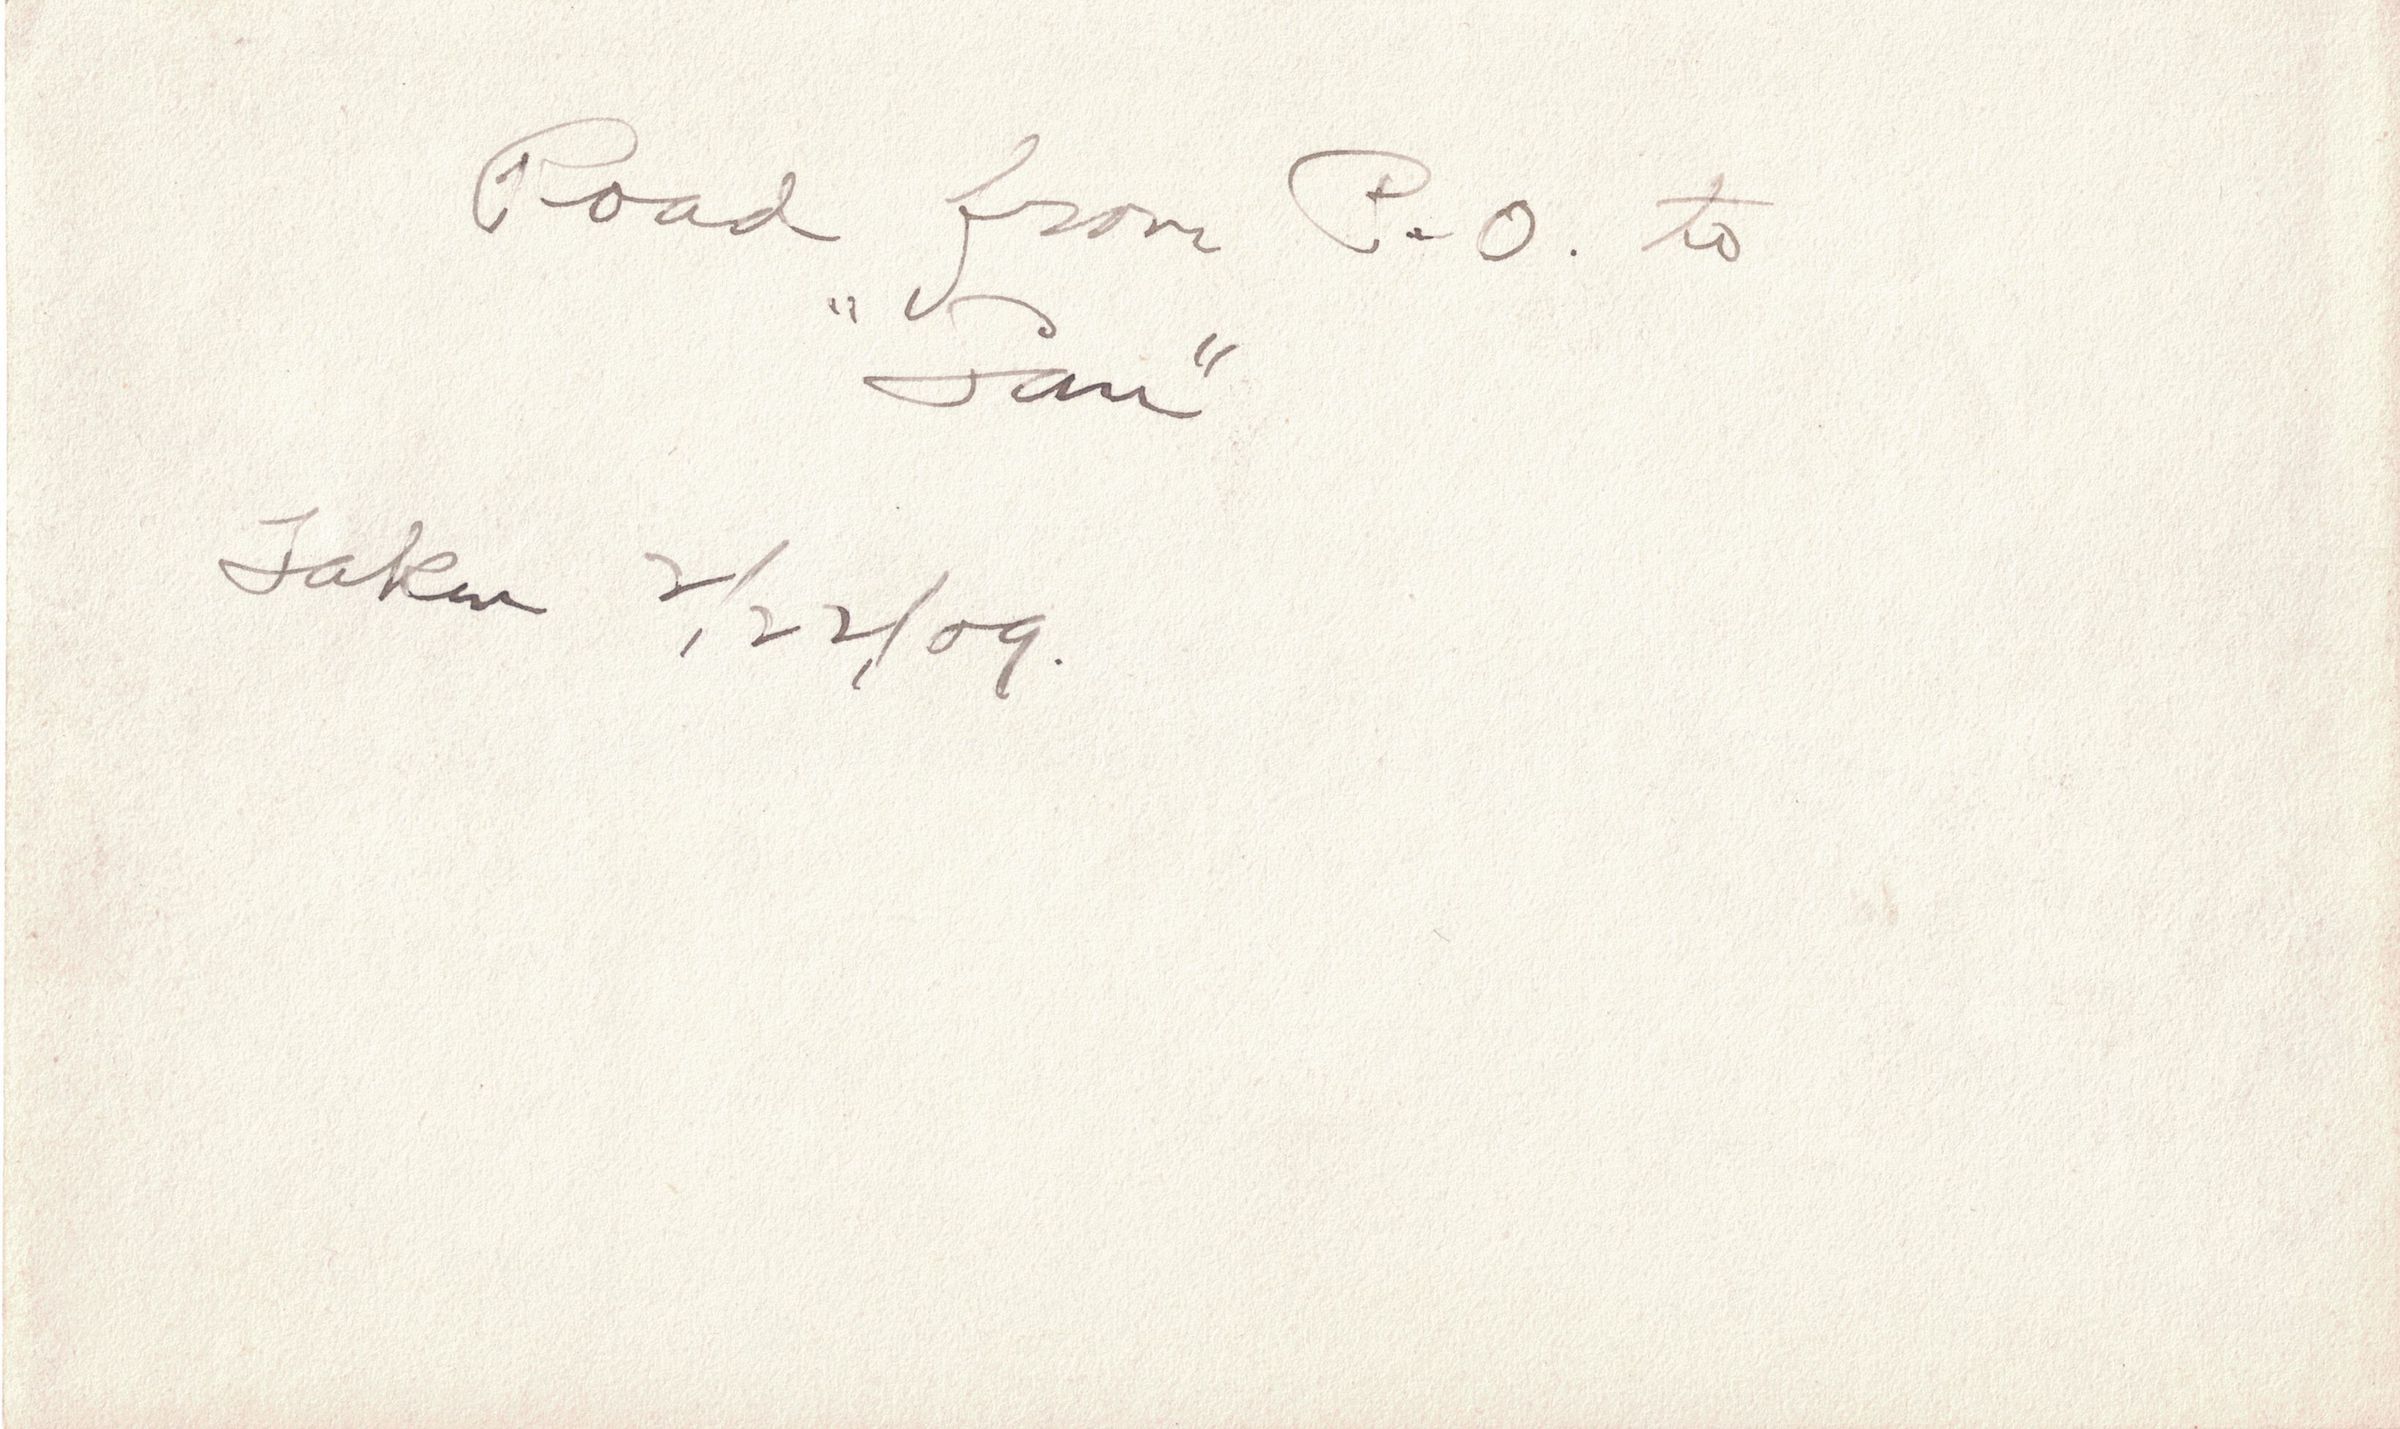 Road from P.O. to
"San"
Taken 2/22/09.